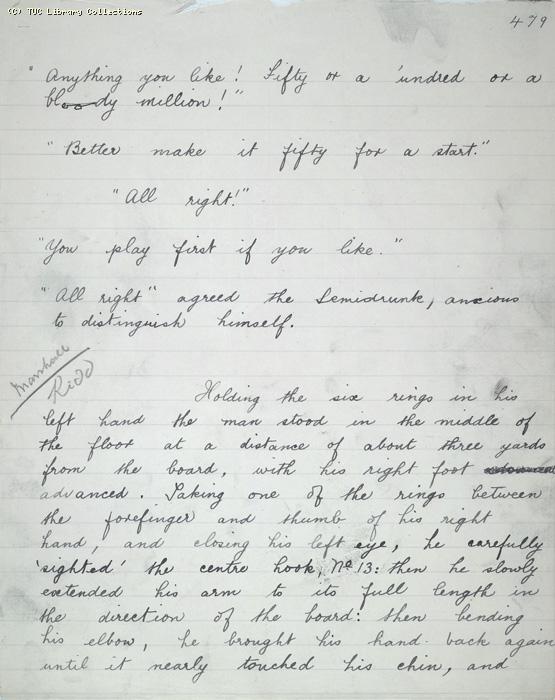 (C) TUC Library Collections
479
"Anything you like! Fifty or a 'undred or a
bloody million!"
"Better make it fifty for a start."
"All right!"
"You play first if you like."
"All right" agreed the Semidrunk, anxious
to distinguish himself.
Marshall
Kidd
Holding the six rings in his
left hand the man stood in the middle of
the floor at a distance of about three yards
from the board, with his right foot
advanced. Taking one of the rings between
the forefinger and thumb of his right
hand, and closing his left eye, he carefully
'sighted' the centre hook, No. 13: then he slowly
extended his arm to its full length in
the direction of the board: then bending
his elbow, he brought his hand back again
until it nearly touched his chin, and